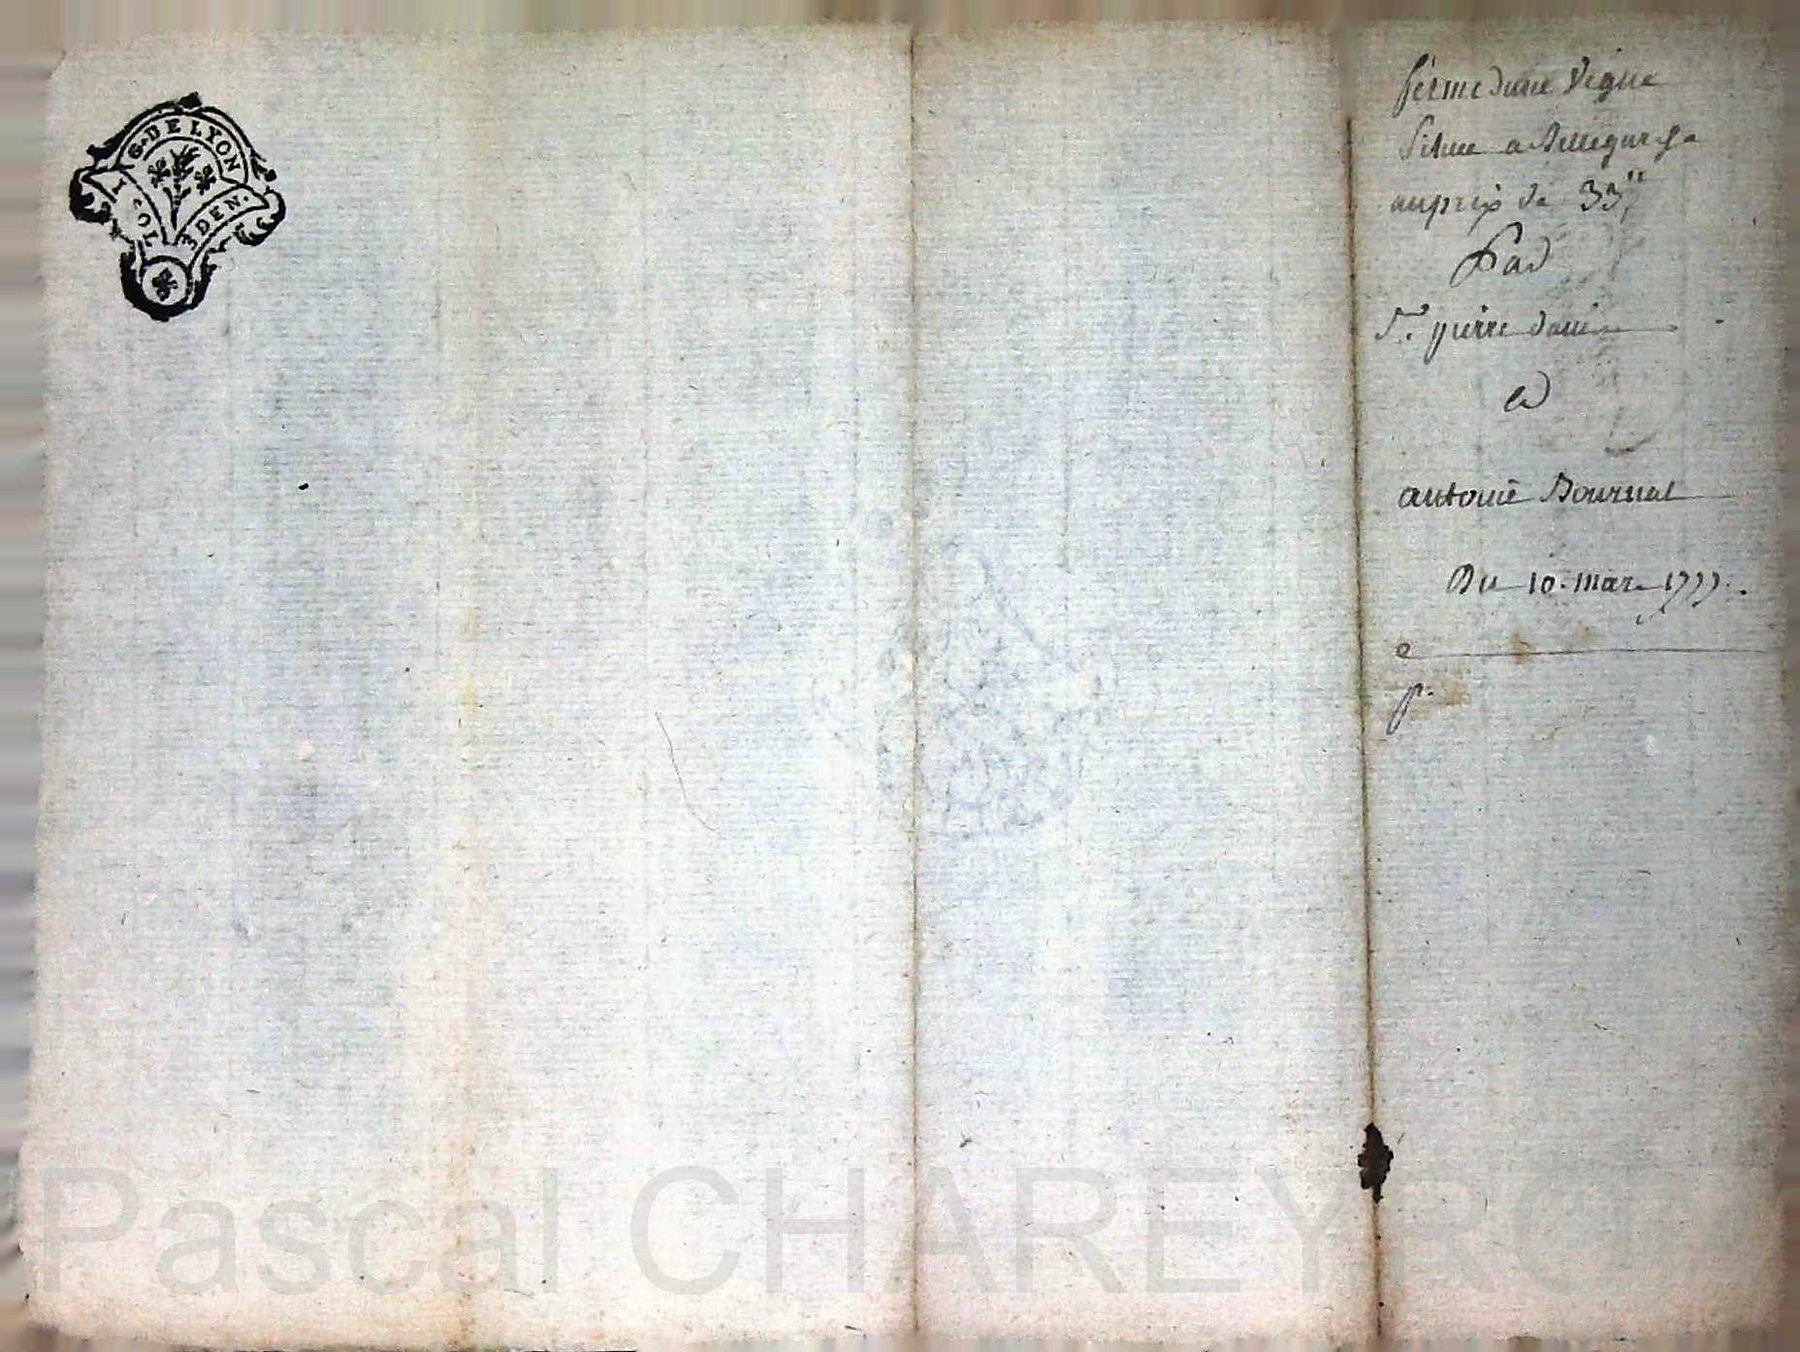 G. DE LYON
1 SOL 3 DEN.
ferme dune Vigne
situee a
au prix de 33"
Par
Sr. pierre
a
antoine Bournat
Du 10. mars 1777.
p.
Pascal CHAREYRO